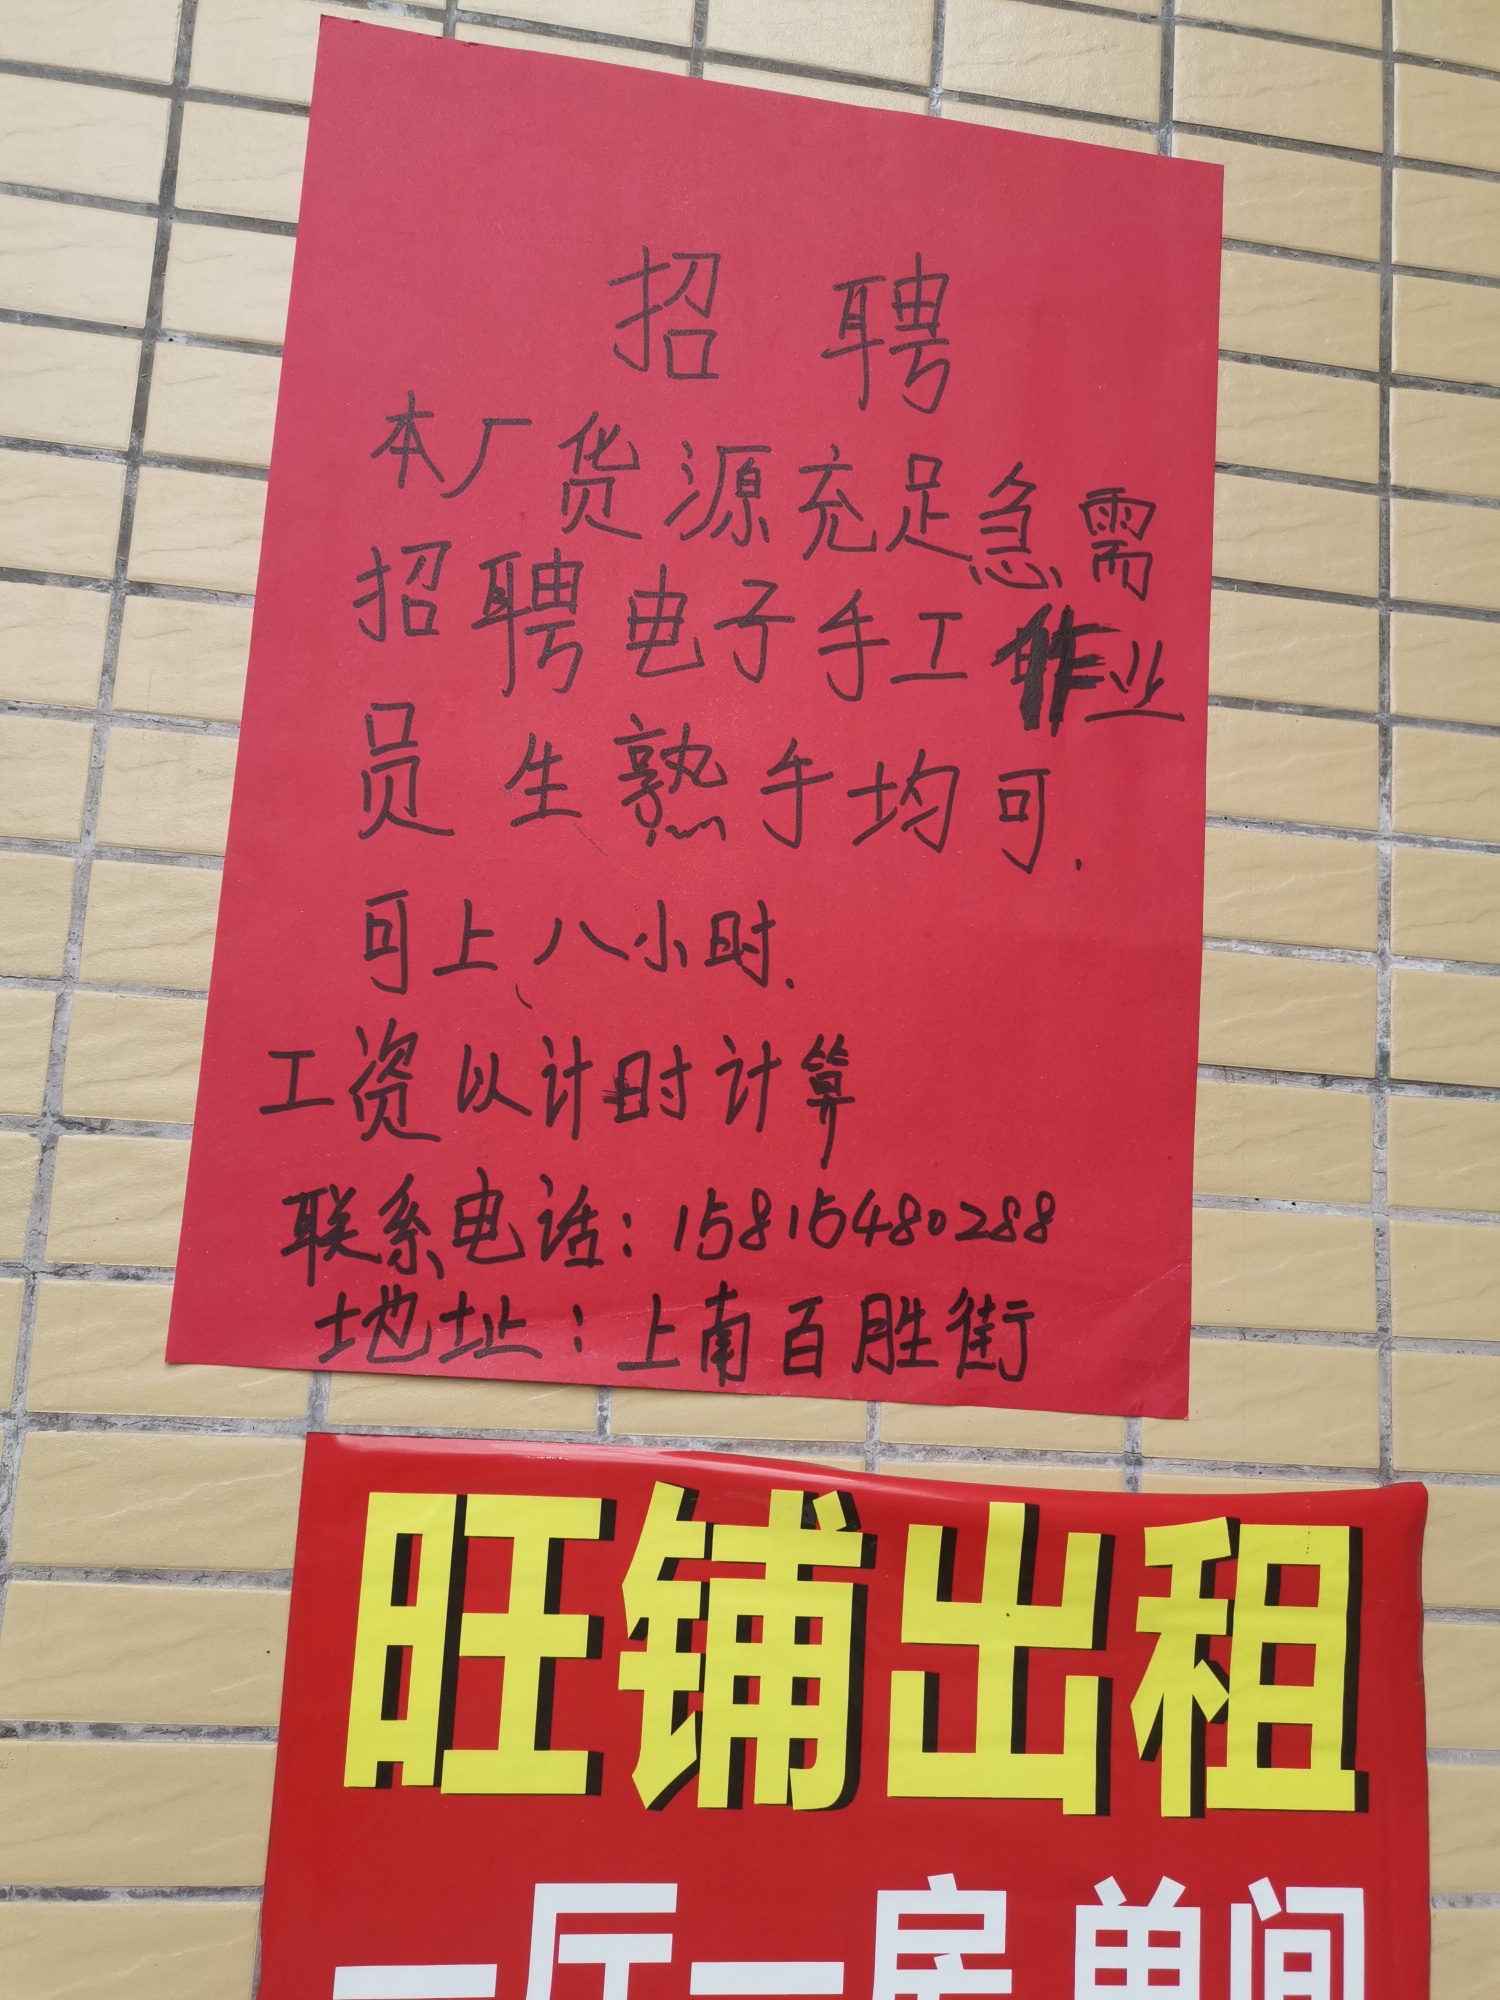 招聘
本厂货源充足急需
招聘电子手工作业
员生熟手均可.
可上八小时.
工资以计时计算
联系电话:15815480288
地址:上南百胜街
旺铺出租
一厅一房 单间